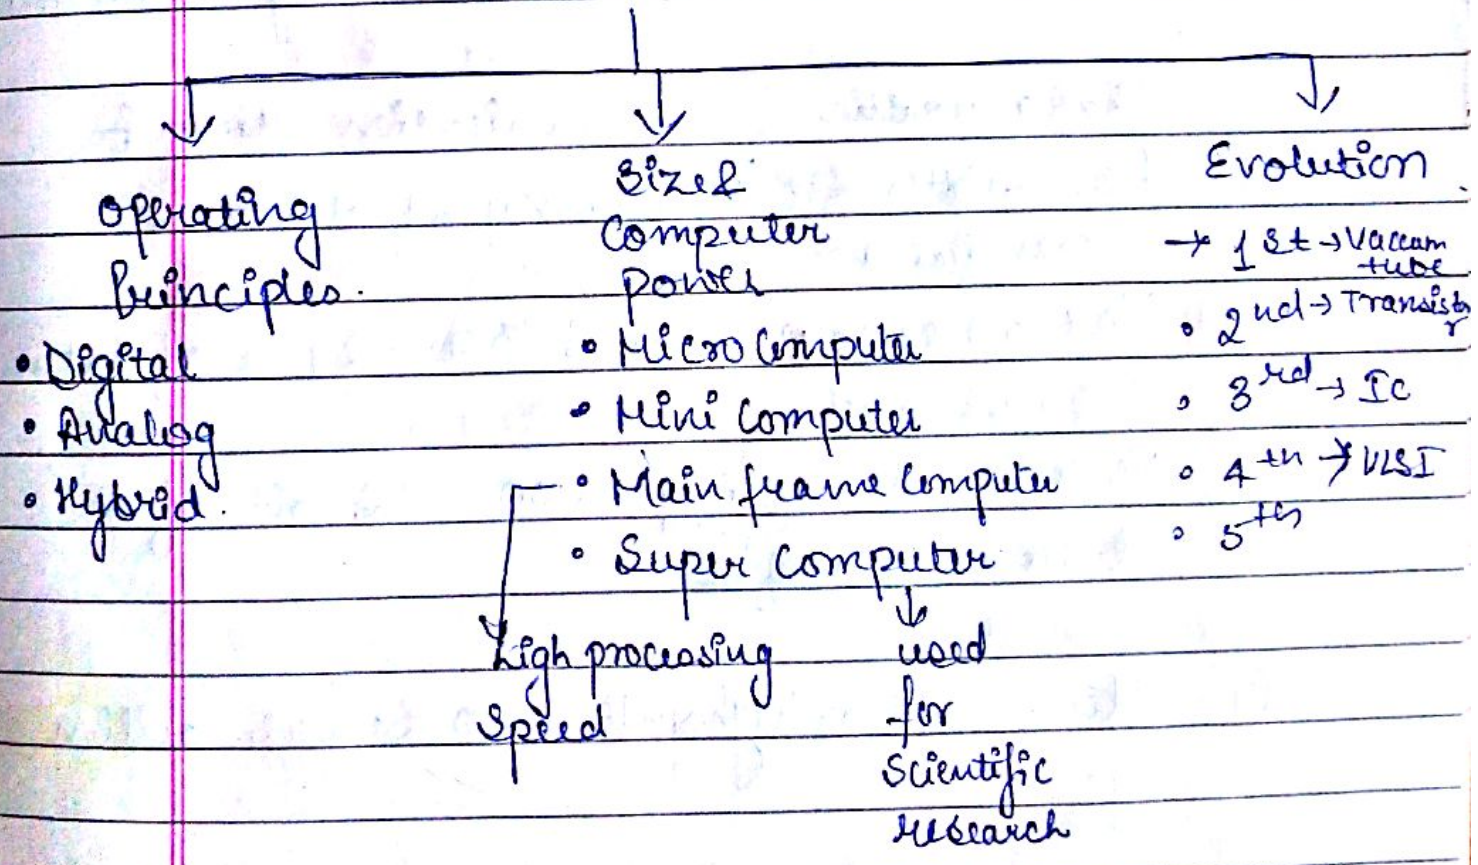 Operating
Principles.
• Digital
• Analog
• Hybrid.
Size &
Computer
power
• Micro Computer
• Mini Computer
• Main frame Computer
• Super Computer
high processing
speed
used
for
scientific
research
Evolution
→ 1st → Vaccum
tube
• 2nd → Transisto
r
• 3rd → Ic
• 4th → VLSI
• 5th